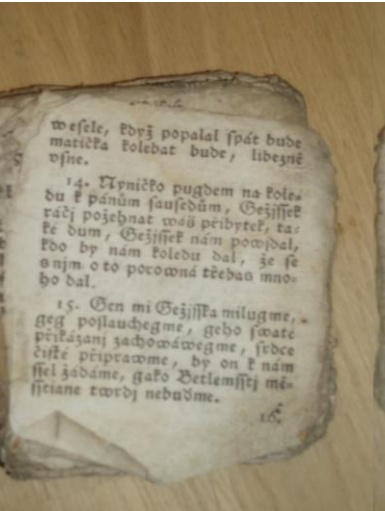 wesele, když popalal spát bude
matička kolebat bude, libezně
vsne.
14. Nyničko pugdem na kole-
du k pánům sausedům, Gežjssek
ráčj požehnat wáš přibytek, ta-
ké dum, Gežjssek nám powjdal,
kdo by nám koledu dal, že se
s njm o to porowná třebas mno-
ho dal.
15. Gen mi Gežjsska milugme,
geg poslauchegme, geho swaté
přikázanj zachowáwegme, srdce
čisté připrawme, by on k nám
ssel žádáme, gako Betlemsstj mě-
sstiane twrdj nebuďme.
16.